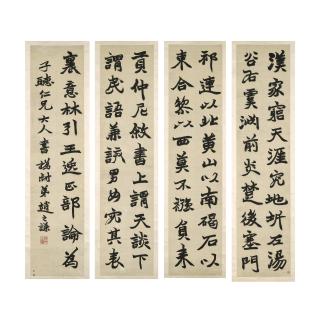 漢家窮天涯究地圻左湯
谷右虞淵前炎楚後塞門
祁連以北黃山以南碣石以
東合黎以西莫不襁負來
貢仲尼敘書上謂天談下
謂民語兼該男女究其表
裏意林引王逸正部論為
子聽仁兄大人書 弟趙之謙